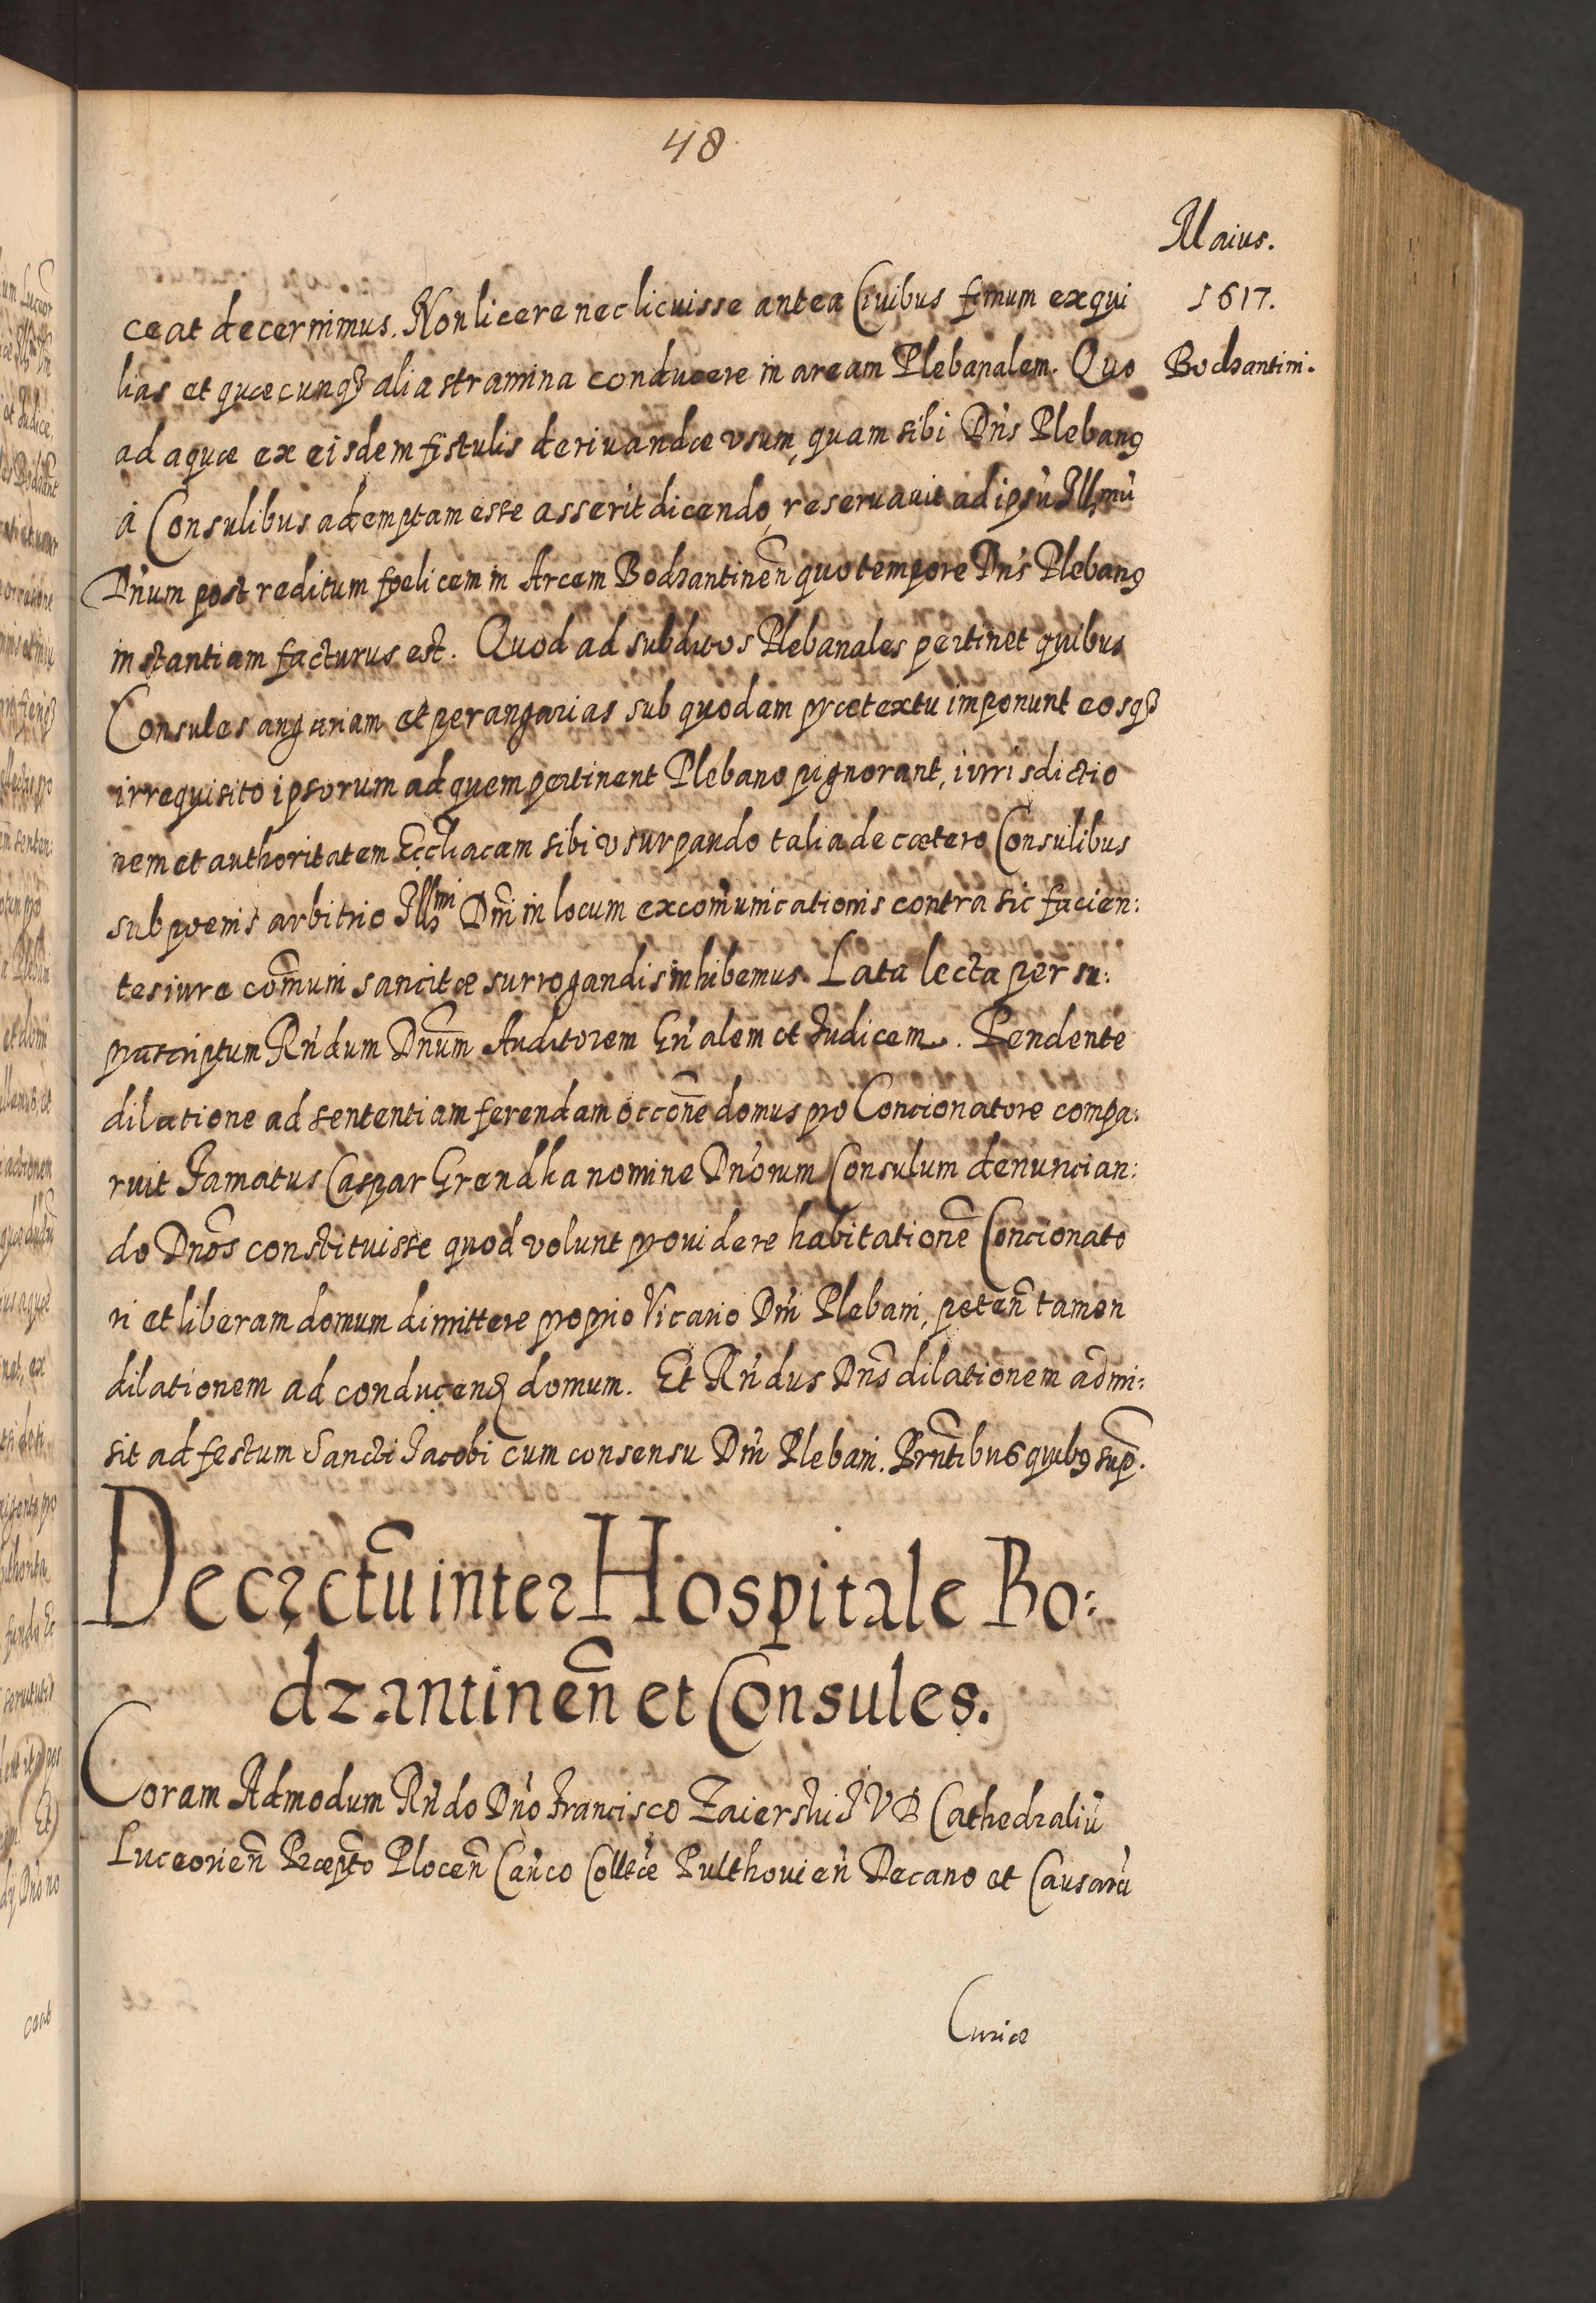 48
Maius.
1617.
Bodzantini.
ceat decernimus. Non licere nec licuisse antea Ciuibus fimum exqui
lias et quæcunqꝫ alia stramina conducere in aream Plebanalem. Quo
ad aquæ ex eisdem fistulis deriuandæ vsum, quam sibi Dn̄s Plebanꝯ
à Consulibus ademptam esse asserit dicendo, reseruauit ad ipsū Illmū
Dn̄um post reditum fœlicem in Arcem Bodzantinen̄ quo tempore Dn̄s Plebanꝯ
instantiam facturus est. Quod ad subditos Plebanales pertinet quibus
Consules angariam et perangarias sub quodam prætextu imponunt eosqꝫ
irrequisito ipsorum ad quem pertinent Plebano pignorant, iurisdictio
nem et authoritatem Eccl̄iacam sibi vsurpando talia de cætero Consulibus
sub pœnis arbitrio Illmi Dn̄i in locum excom̄unicationis contra sic facien:
tes iure com̄uni sancitæ surrogandis inhibemus. Lata lecta per su:
prascriptum Rn̄dum Dn̄um Auditorem Gn̄alem et Judicem. Pendente
dilatione ad sententiam ferendam occōne domus pro Concionatore compa:
ruit Famatus Caspar Grendka nomine Dn̄orum Consulum denuncian:
do Dn̄os constituisse quod volunt prouidere habitationē Concionato
ri et liberam domum dimittere proprio Vicario Dn̄i Plebani, peten̄ tamen
dilationem ad conducenꝗ domum. Et Rn̄dus Dn̄s dilationem admi:
sit ad festum Sancti Jacobi cum consensu Dn̄i Plebani. Prn̄tibus quibꝯ sup̄.
Decretū inter Hospitale Bo:
dzantinen̄ et Consules.
Coram Admodum Rn̄do Dn̄o Francisco Zaierski J V D Cathedraliū
Luceorien̄ Præpt̄o Plocen̄ Can̄co Collet̄æ Pulthouien̄ Decano et Causarū
Curiæ